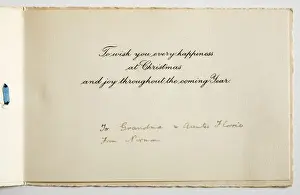 To wish you every happiness
at Christmas
and joy throughout the coming Year.
To Grandma & Auntie Florrie
From Norman